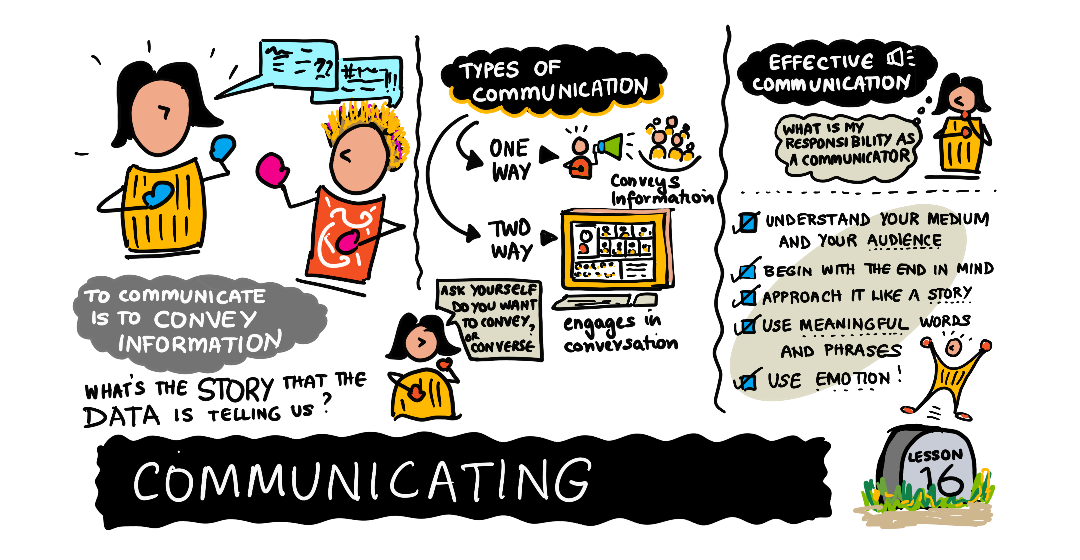 TO COMMUNICATE
IS TO CONVEY
INFORMATION
WHAT'S THE STORY THAT THE
DATA IS TELLING US?
TYPES OF
COMMUNICATION
ONE
WAY
Conveys
Information
TWO
WAY
engages in
conversation
ASK YOURSELF
DO YOU WANT
TO CONVEY,
OR
CONVERSE?
EFFECTIVE
COMMUNICATION
WHAT IS MY
RESPONSIBILITY AS
A COMMUNICATOR
UNDERSTAND YOUR MEDIUM
AND YOUR AUDIENCE
BEGIN WITH THE END IN MIND
APPROACH IT LIKE A STORY
USE MEANINGFUL WORDS
AND PHRASES
USE EMOTION!
COMMUNICATING
LESSON
16